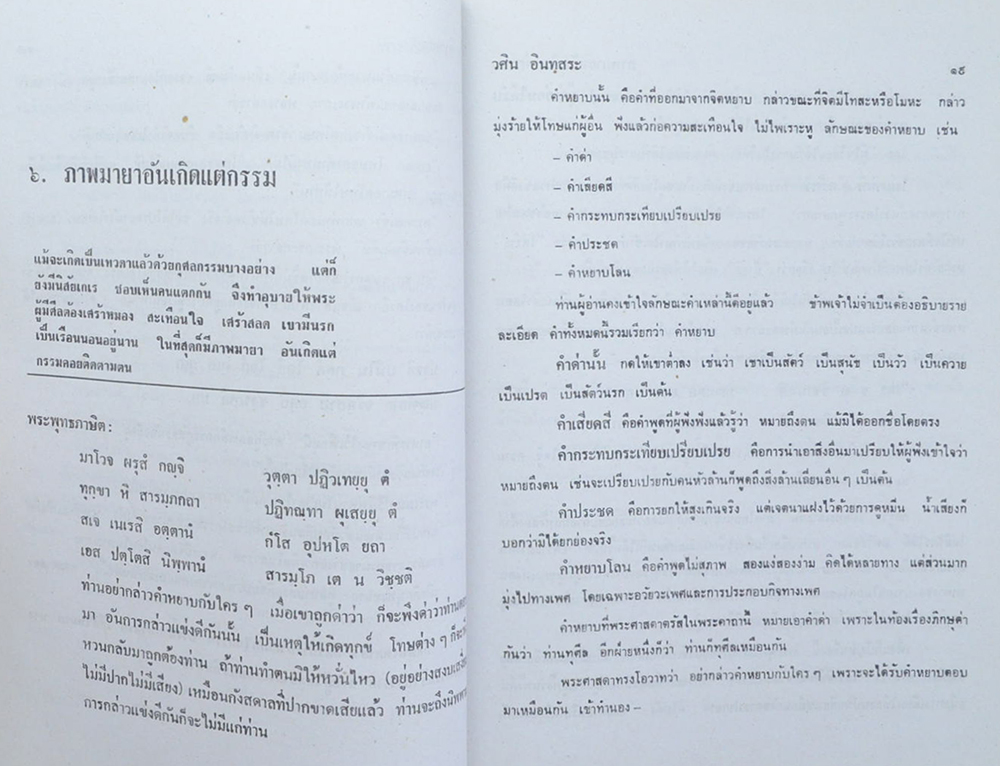 ๖. ภาพมายาอันเกิดแต่กรรม
แม้จะเกิดเป็นเทวดาแล้วด้วยกุศลกรรมบางอย่าง แต่ก็
ยังมีนิสัยเกเร ชอบเห็นคนแตกกัน จึงทำอุบายให้พระ
ผู้มีศีลต้องเศร้าหมอง สะเทือนใจ เศร้าสลด เขามีนรก
เป็นเรือนนอนอยู่นาน ในที่สุดก็มีภาพมายา อันเกิดแต่
กรรมคอยติดตามตน
พระพุทธภาษิต:
มาโวจ ผรุสํ กญฺจิ วุตฺตา ปฏิวเทยฺยุ ตํ
ทุกฺขา หิ สารมฺภกถา ปฏิทณฺฑา ผุเสยฺยุ ตํ
สเจ เนเรสิ อตฺตานํ กํโส อุปหโต ยถา
เอส ปตฺโตสิ นิพฺพานํ สารมฺโภ เต น วิชฺชติ
ท่านอย่ากล่าวคำหยาบกับใคร ๆ เมื่อเขาถูกด่าว่า ก็จะพึงด่าว่าท่าน
มา อันการกล่าวแข่งดีกันนั้น เป็นเหตุให้เกิดทุกข์ โทษต่าง ๆ ก็จะ
หวนกลับมาถูกต้องท่าน ถ้าท่านทำตนมิให้หวั่นไหว (อยู่อย่างสงบ
ไม่มีปากไม่มีเสียง) เหมือนกังสดาลที่ปากขาดเสียแล้ว ท่านจะถึง
การกล่าวแข่งดีกันก็จะไม่มีแก่ท่าน
วศิน อินทสระ
๑๙
คำหยาบนั้น คือคำที่ออกมาจากจิตหยาบ กล่าวขณะที่จิตมีโทสะหรือโมหะ กล่าว
มุ่งร้ายให้โทษแก่ผู้อื่น ฟังแล้วก่อความสะเทือนใจ ไม่ไพเราะหู ลักษณะของคำหยาบ เช่น
– คำด่า
– คำเสียดสี
– คำกระทบกระเทียบเปรียบเปรย
– คำประชด
– คำหยาบโลน
ท่านผู้อ่านคงเข้าใจลักษณะคำเหล่านี้ดีอยู่แล้ว ข้าพเจ้าไม่จำเป็นต้องอธิบายราย
ละเอียด คำทั้งหมดนี้รวมเรียกว่า คำหยาบ
คำด่านั้น กดให้เขาต่ำลง เช่นว่า เขาเป็นสัตว์ เป็นสุนัข เป็นวัว เป็นควาย
เป็นเปรต เป็นสัตว์นรก เป็นต้น
คำเสียดสี คือคำพูดที่ผู้ฟังฟังแล้วรู้ว่า หมายถึงตน แม้มิได้ออกชื่อโดยตรง
คำกระทบกระเทียบเปรียบเปรย คือการนำเอาสิ่งอื่นมาเปรียบให้ผู้ฟังเข้าใจว่า
หมายถึงตน เช่นจะเปรียบเปรยกับคนหัวล้านก็พูดถึงสิ่งล้านเลี่ยนอื่น ๆ เป็นต้น
คำประชด คือการยกให้สูงเกินจริง แต่เจตนาแฝงไว้ด้วยการดูหมิ่น น้ำเสียงก็
บอกว่ามิได้ยกย่องจริง
คำหยาบโลน คือคำพูดไม่สุภาพ สองแง่สองง่าม คิดได้หลายทาง แต่ส่วนมาก
มุ่งไปทางเพศ โดยเฉพาะอวัยวะเพศและการประกอบกิจทางเพศ
คำหยาบที่พระศาสดาตรัสในพระคาถานี้ หมายเอาคำด่า เพราะในท้องเรื่องภิกษุด่า
กันว่า ท่านทุศีล อีกฝ่ายหนึ่งก็ว่า ท่านก็ทุศีลเหมือนกัน
พระศาสดาทรงโอวาทว่า อย่ากล่าวคำหยาบกับใคร ๆ เพราะจะได้รับคำหยาบตอบ
มาเหมือนกัน เข้าทำนอง –